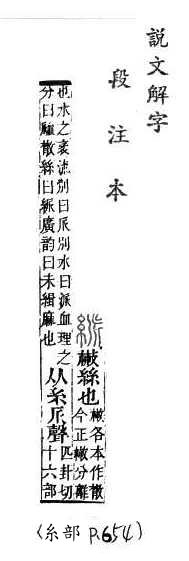 說文解字
段注本
㪔絲也
㪔各本作散
今正㪔分離
也水之衺流別曰𠂢別水曰派血理之
分曰䘑散絲曰𥿯廣韵曰未緝麻也
从糸𠂢聲
匹卦切
十六部
(糸部 P.654)